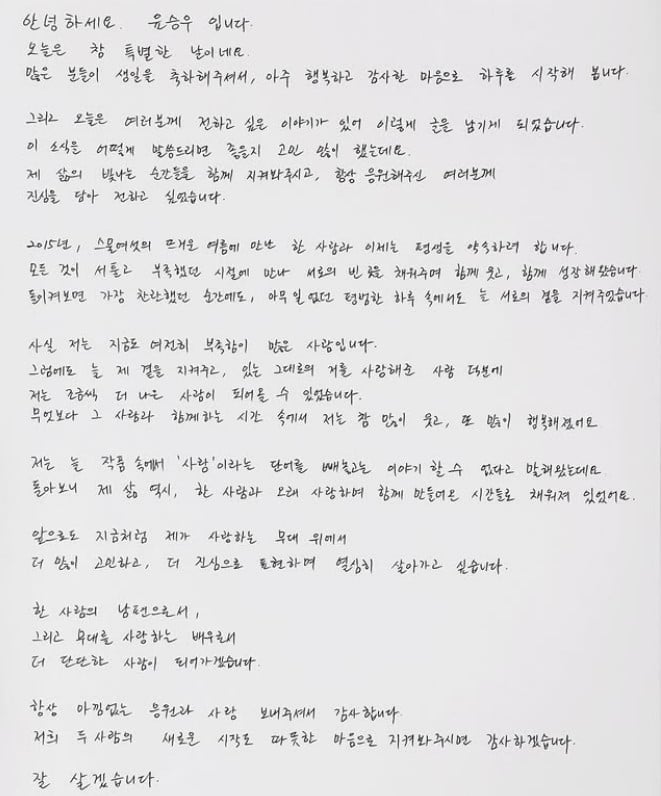 안녕하세요. 윤승우 입니다.
오늘은 참 특별한 날이네요.
많은 분들이 생일을 축하해주셔서, 아주 행복하고 감사한 마음으로 하루를 시작해 봅니다.
그리고 오늘은 여러분께 전하고 싶은 이야기가 있어 이렇게 글을 남기게 되었습니다.
이 소식을 어떻게 말씀드리면 좋을지 고민 많이 했는데요.
제 삶의 빛나는 순간들을 함께 지켜봐주시고, 항상 응원해주신 여러분께
진심을 담아 전하고 싶었습니다.
2015년, 스물여섯의 뜨거운 여름에 만난 한 사람과 이제는 평생을 약속하려 합니다.
모든 것이 서툴고 부족했던 시절에 만나 서로의 빈 곳을 채워주며 함께 웃고, 함께 성장해왔습니다.
돌이켜보면 가장 찬란했던 순간에도, 아무 일 없던 평범한 하루 속에서도 늘 서로의 곁을 지켜주었습니다.
사실 저는 지금도 여전히 부족함이 많은 사람입니다.
그럼에도 늘 제 곁을 지켜주고, 있는 그대로의 저를 사랑해준 사람 덕분에
저는 조금씩 더 나은 사람이 되어올 수 있었습니다.
무엇보다 그 사람과 함께하는 시간 속에서 저는 참 많이 웃고, 또 많이 행복해졌어요.
저는 늘 작품 속에서 '사랑'이라는 단어를 빼놓고는 이야기 할 수 없다고 말해왔는데요.
돌아보니 제 삶 역시, 한 사람과 오래 사랑하며 함께 만들어온 시간들로 채워져 있었어요.
앞으로도 지금처럼 제가 사랑하는 무대 위에서
더 많이 고민하고, 더 진심으로 표현하며 열심히 살아가고 싶습니다.
한 사람의 남편으로서,
그리고 무대를 사랑하는 배우로서
더 단단한 사람이 되어가겠습니다.
항상 아낌없는 응원과 사랑 보내주셔서 감사합니다.
저희 두 사람의 새로운 시작도 따뜻한 마음으로 지켜봐주시면 감사하겠습니다.
잘 살겠습니다.